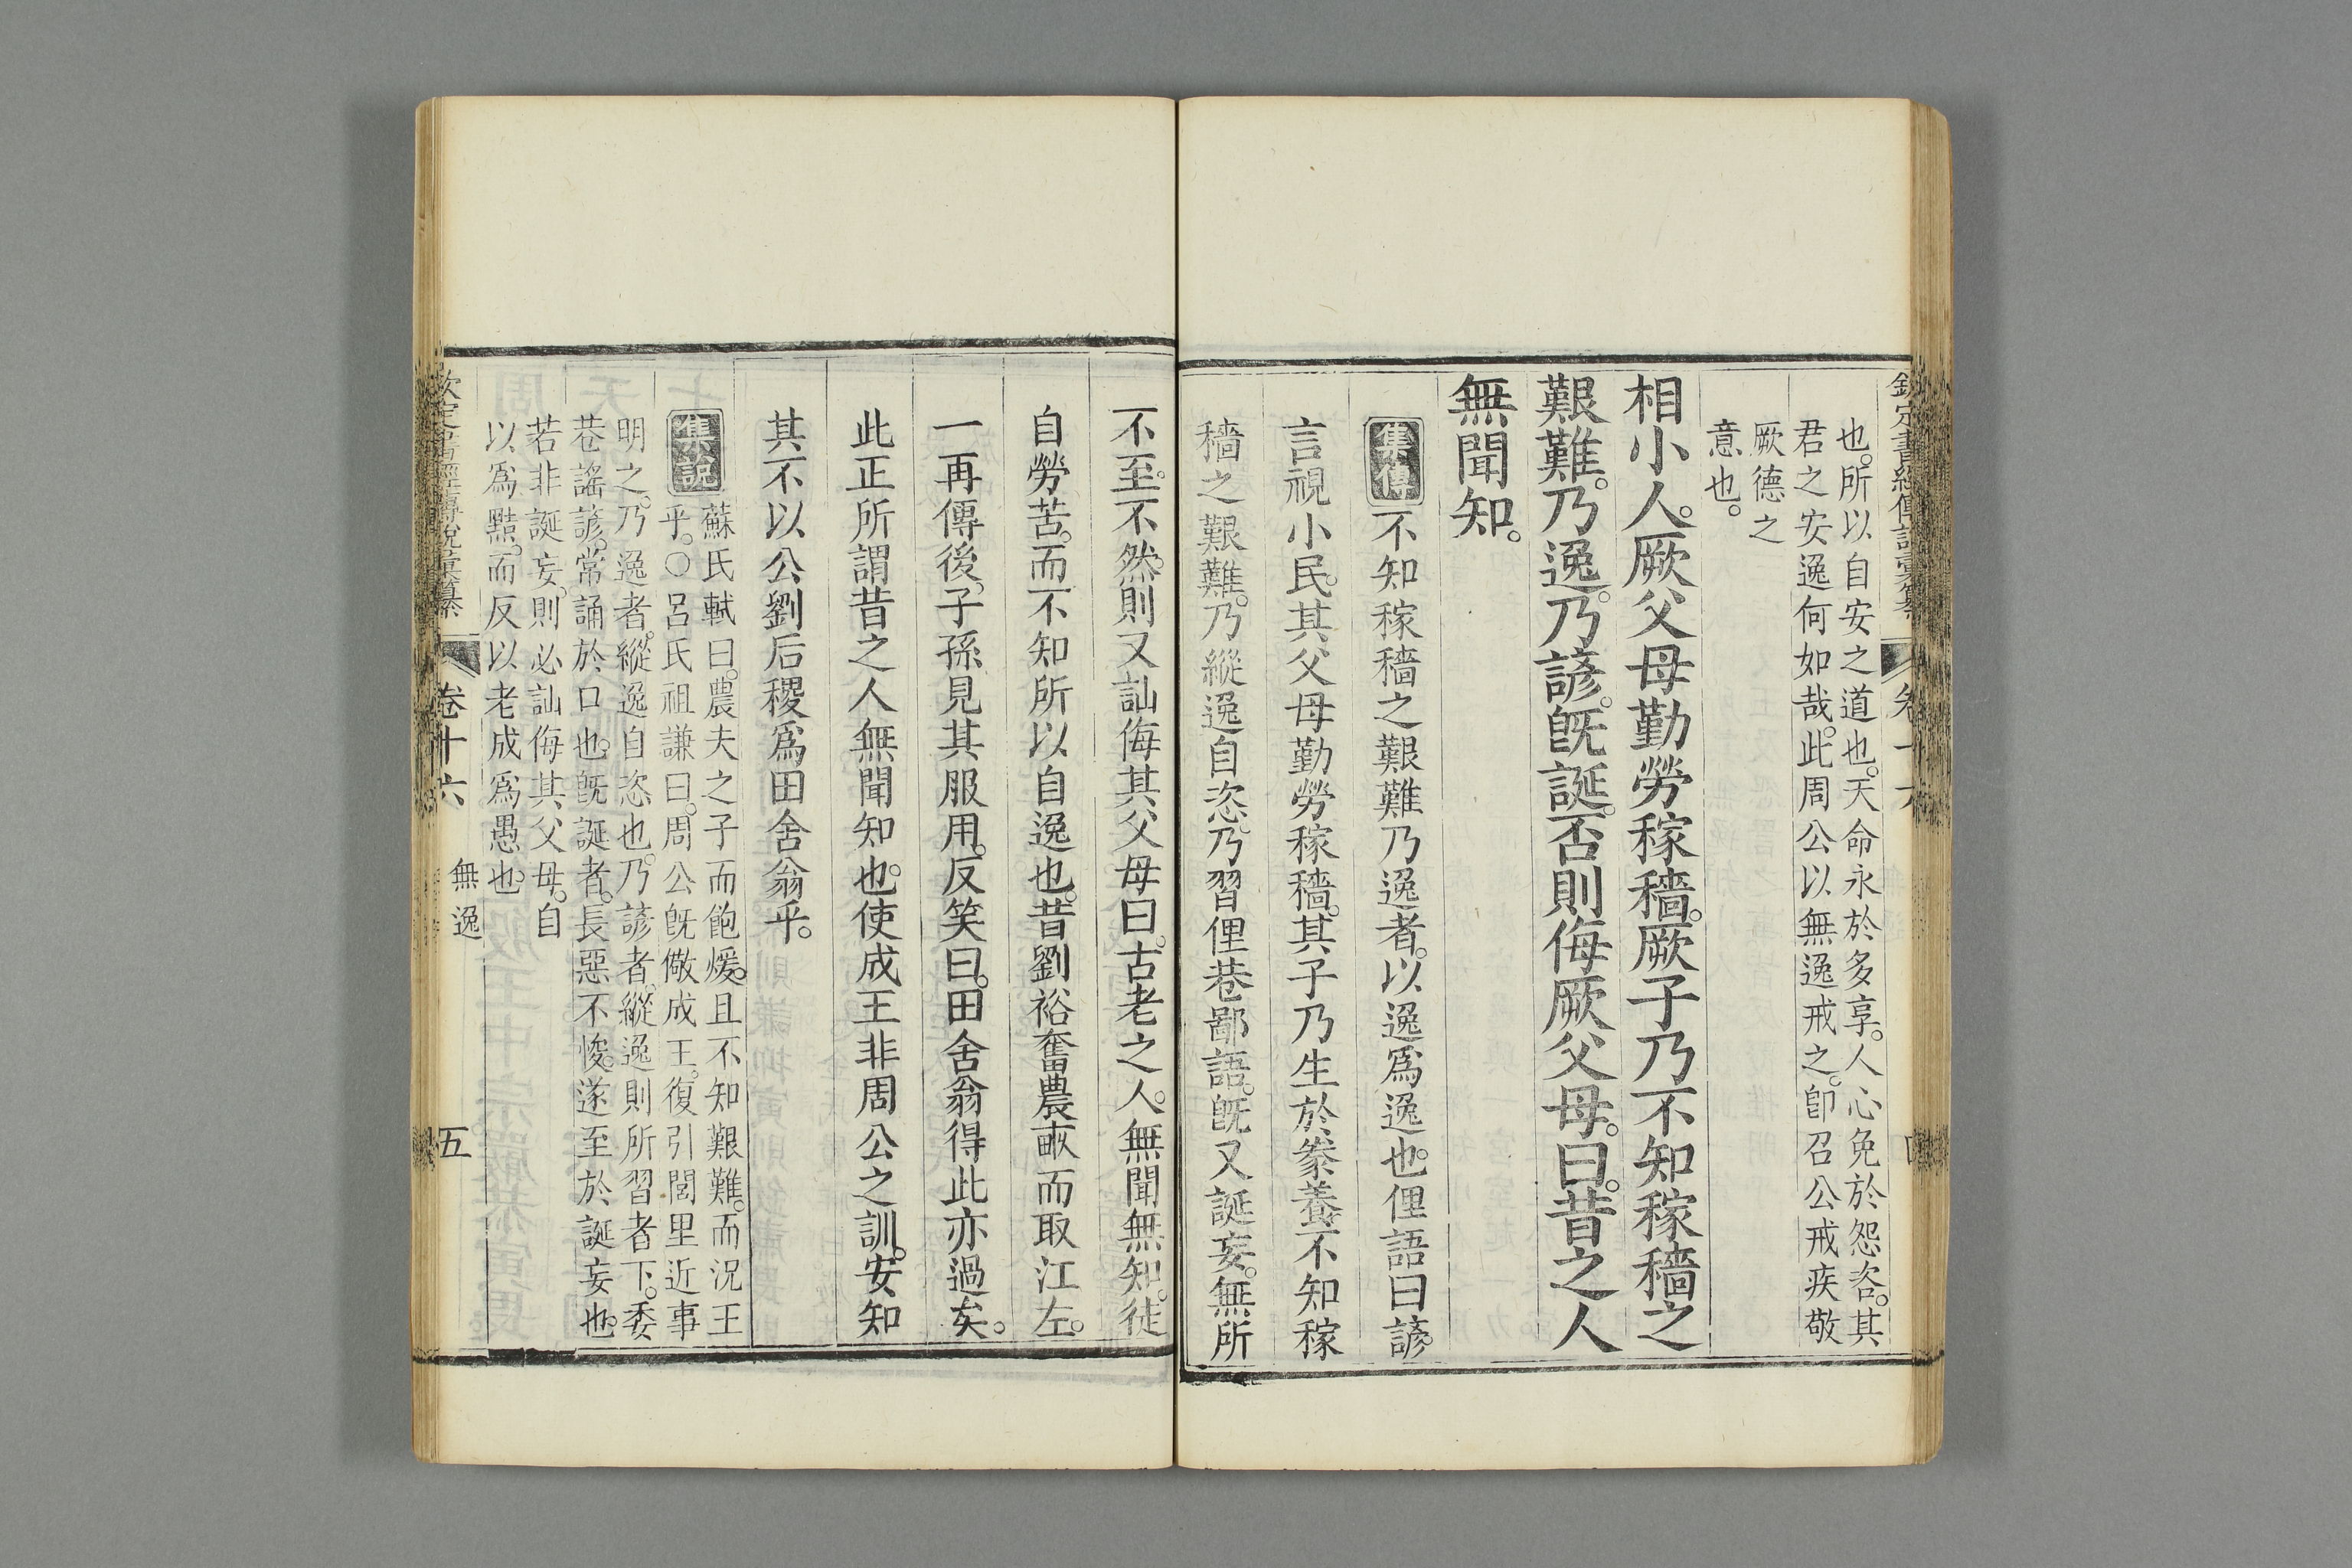 欽定書經傳說彙纂 卷十六
也。所以自安之道也。天命永於多享。人心免於怨咨。其
君之安逸何如哉。此周公以無逸戒之。卽召公戒疾敬
厥德之
意也。
相小人。厥父母勤勞稼穡。厥子乃不知稼穡之
艱難。乃逸。乃諺。旣誕。否則侮厥父母。曰。昔之人
無聞知。
集傳 不知稼穡之艱難乃逸者。以逸爲逸也。俚語曰諺。
言視小民。其父母勤勞稼穡。其子乃生於豢養。不知稼
穡之艱難。乃縱逸自恣。乃習俚巷鄙語。旣又誕妄。無所
不至。不然。則又訕侮其父母曰。古老之人。無聞無知。徒
自勞苦。而不知所以自逸也。昔劉裕奮農畝而取江左。
一再傳後。子孫見其服用。反笑曰。田舍翁得此亦過矣。
此正所謂昔之人無聞知也。使成王非周公之訓。安知
其不以公劉后稷爲田舍翁乎。
集說 蘇氏軾曰。農夫之子而飽煖。且不知艱難。而況王
乎。○呂氏祖謙曰。周公旣儆成王。復引閭里近事
明之。乃逸者。縱逸自恣也。乃諺者。縱逸則所習者下。委
巷謠諺。常誦於口也。旣誕者。長惡不悛。遂至於誕妄也。
若非誕妄。則必訕侮其父母。自
以爲黠。而反以老成爲愚也。
欽定書經傳說彙纂 卷十六 無逸 五